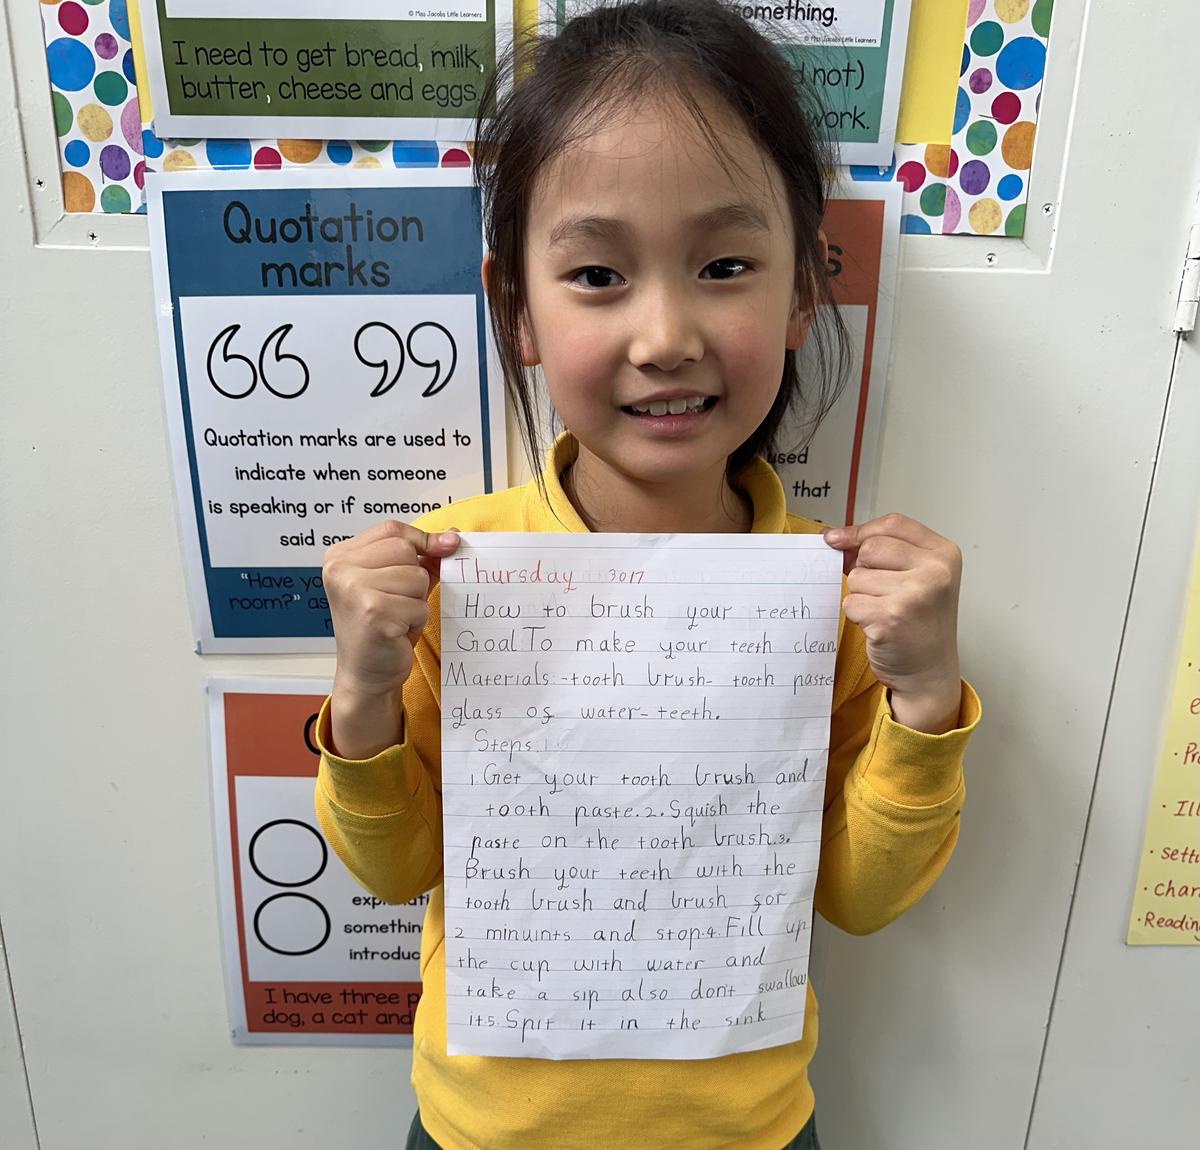 © Miss Jacobs Little Learners
I need to get bread, milk,
butter, cheese and eggs.
something.
© Miss Jacobs Little Learners
not)
work.
Quotation
marks
“ ”
Quotation marks are used to
indicate when someone
is speaking or if someone
said
"Have
room?" as
used
that
Thursday 3017
How to brush your teeth
Goal To make your teeth clean.
Materials:-tooth brush- tooth paste-
glass of water- teeth.
Steps.1
1.Get your tooth brush and
tooth paste.2.Squish the
paste on the tooth brush.3.
Brush your teeth with the
tooth brush and brush for
2 minuints and stop.4.Fill up
the cup with water and
take a sip also dont swallow
it5.Spit it in the sink
somethin
introduc
I have three p
dog, a cat and
· Ill
· sett
· Char
·Reading